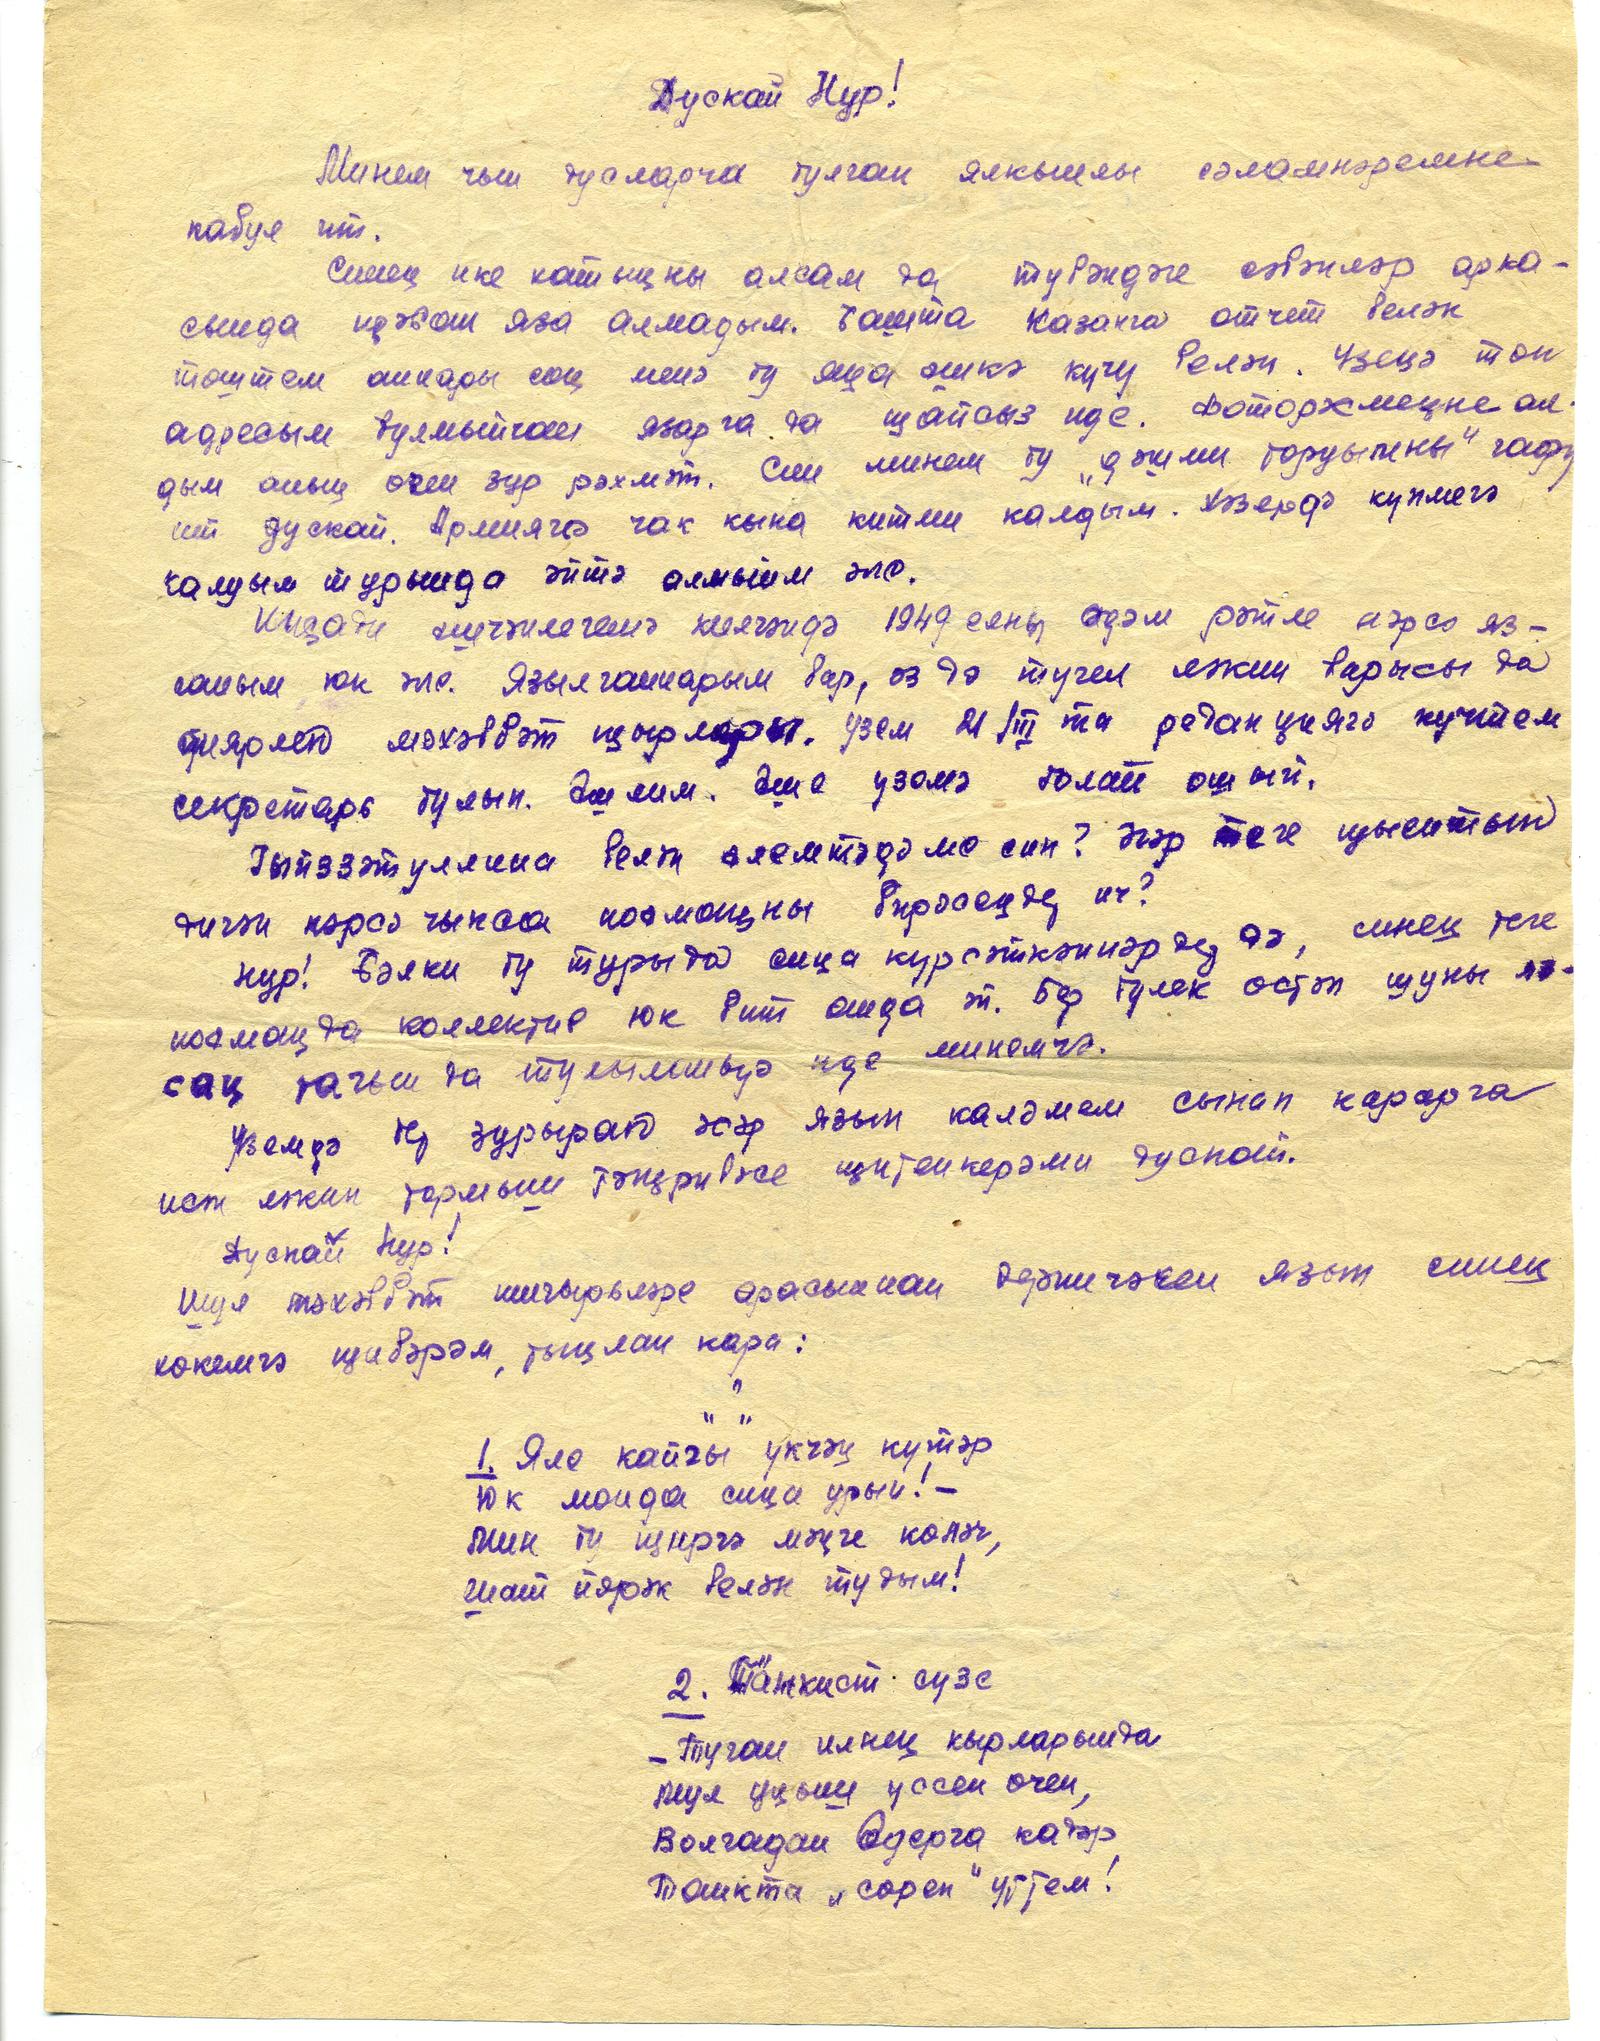 Дускай Нур!
Минем чын дусларча булган ялкынлы сәламнәремне
кабул ит.
Синең ике хатыңны алсам да түбәндәге сәбәпләр арка-
сында җавап яза алмадым. Башта Казанга отчет белән
киттем аннары соң менә бу яңа эшкә күчү белән. Үзеңә төп
адресым булмыйча язарга да җайсыз иде. Фоторәсмеңне ал-
дым аның өчен зур рәхмәт. Син минем бу „дәшми торуымны" гафу
ит дускай. Армиягә чак кына китми калдым. Хәзергә күпмегә
калдым турында әйтә алмыйм әле.
Иҗади эшчәнлегемә килгәндә 1949 елны әдәм рәтле нәрсә яз-
ганым юк әле. Язылганнарым бар, аз да түгел ләкин барысы да
диярлек мәхәббәт җырлары. Үзем 21/III та редакциягә күчтем
секретарь булып. Эшлим. Эше үземә болай ошый.
Гыйззәтуллина белән элемтәдәме син? Әгәр теге җыентык
дигән нәрсә чыкса поэмаңны бирәсеңдер ич?
Нур! Бәлки бу турыда сиңа күрсәткәннәрдер дә, синең теге
поэмаңда коллектив юк бит анда ә. Бер бүлек өстәп шуны яз-
саң тагын да тулыланыр иде минемчә.
Үземдә бер зурырак әсәр язып каләмем сынап карарга
исәп ләкин тормыш тәҗрибәсе җитенкерәми дускай.
Дускай Нур!
Шул мәхәббәт шигырьләре арасыннан берничәсен язып синең
хөкемгә җибәрәм, тыңлап кара:
1. Әле кайгы укчәң күтәр
Юк монда сиңа урын! –
Мин бу җиргә мәңге көләч,
Шат йөрәк белән тудым!
2. Танкист сүзе
– Туган илнең кырларында
Мул уңыш үссен өчен,
Волгадан Одерга кадәр
Танкта „сөреп" үттем!